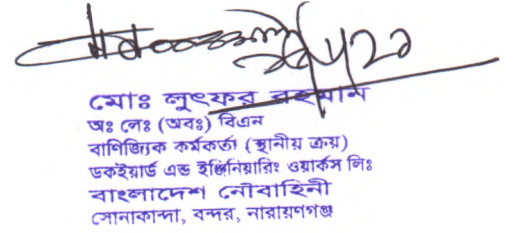 মোঃ লুৎফর রহমান
অঃ লেঃ (অবঃ) বিএন
বাণিজ্যিক কর্মকর্তা (স্থানীয় ক্রয়)
ডকইয়ার্ড এন্ড ইঞ্জিনিয়ারিং ওয়ার্কস লিঃ
বাংলাদেশ নৌবাহিনী
সোনাকান্দা, বন্দর, নারায়ণগঞ্জ